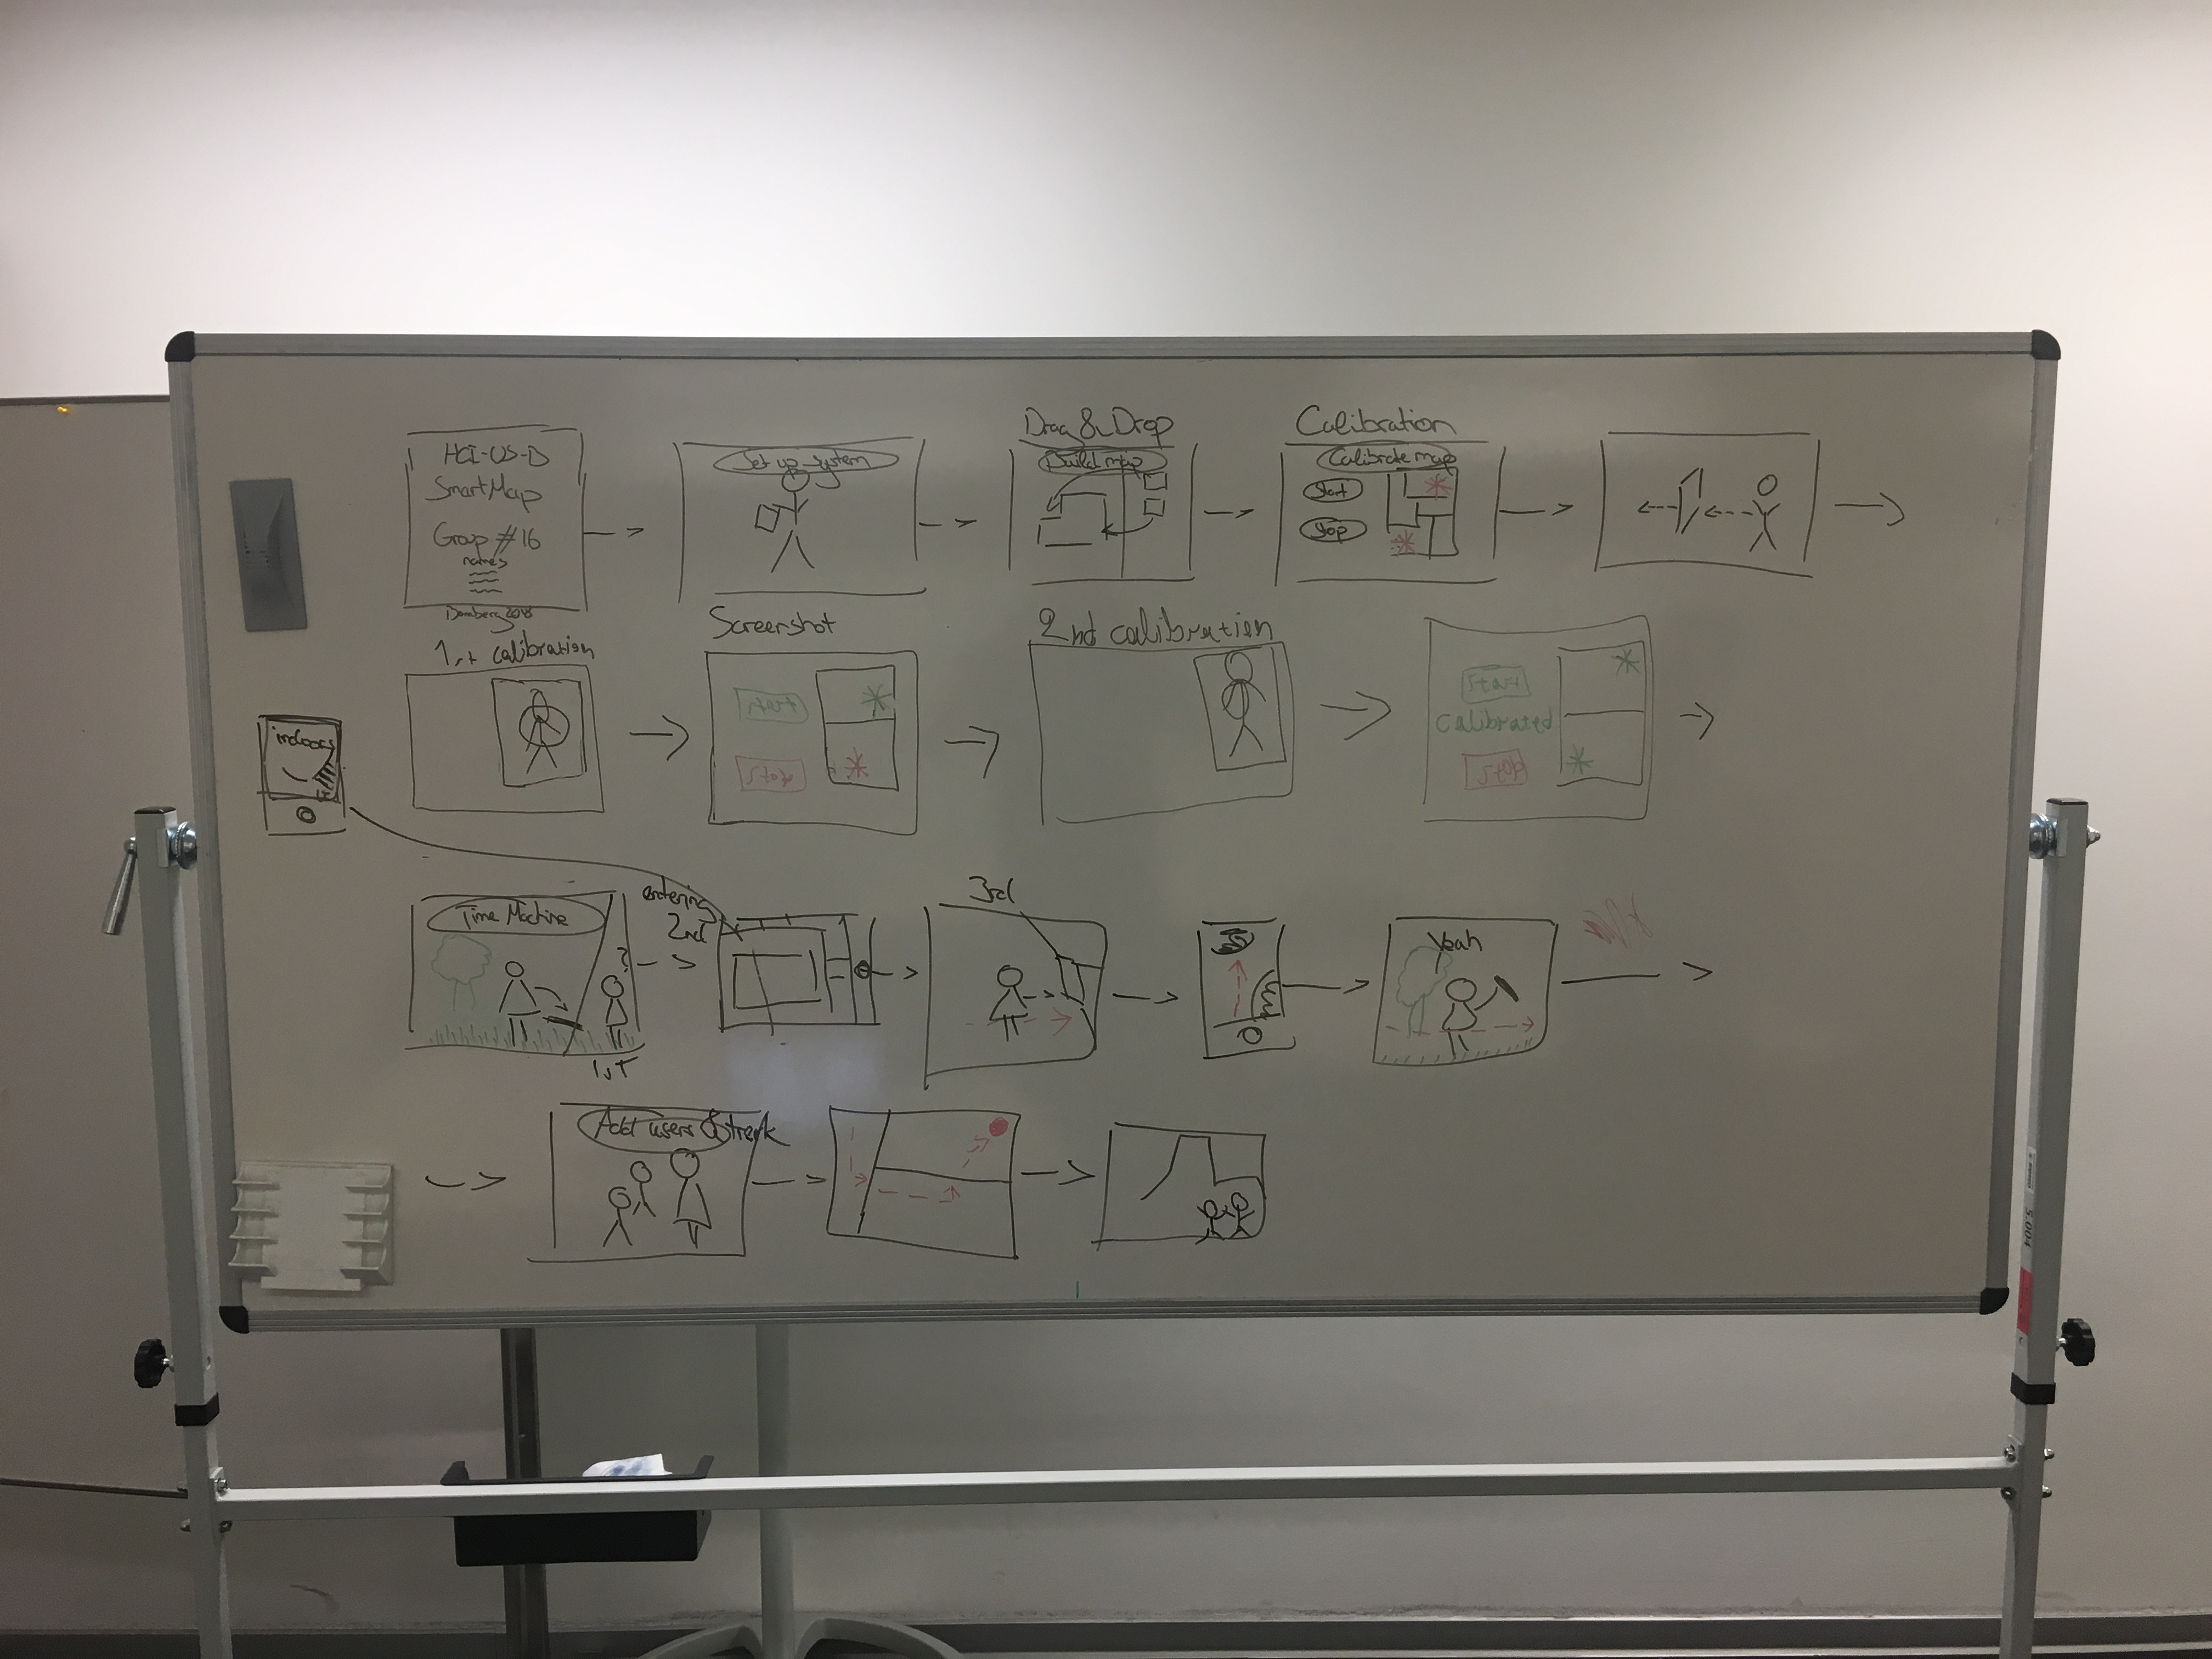 HCI-US-D
SmartMap
Group #16
names
Bamberg 2018
Set up system
Drag & Drop
Build map
Calibration
Calibrate map
Start
Stop
1st calibration
Screenshot
start
stop
2nd calibration
Start
Calibrated
stop
indoors
Time Machine
?
1st
entering
2nd
3rd
Yeah
Add users & track
5.004